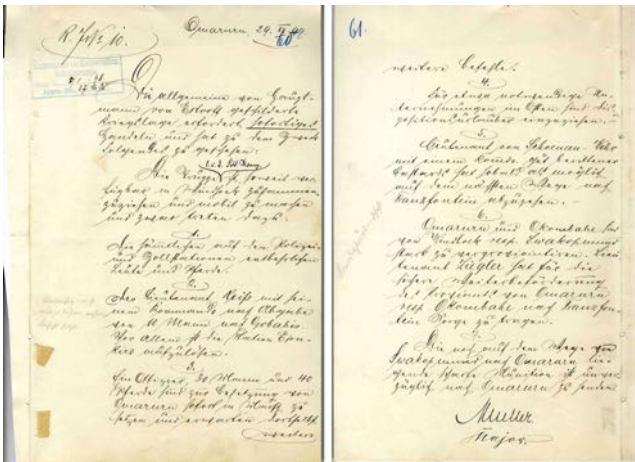 R. Js№ 10.
Omaruru, 29.
60
Die allgemeine von Haupt-
mann von Estorff geschilderte
Kriegslage erfordert sofortiges
Handeln und hat zu dem Zweck
folgendes zu geschehen:
Die Truppe ist, soweit ver-
fügbar in Windhoek zusammen
zuziehen und mobil zu machen
und zwar treten dazu:
1.
die sämtlichen auf den Polizei-
und Zollstationen entbehrlichen
Leute und Pferde.
2.
Lieutenant Reiß mit sei-
nem Kommando nach Abgabe
von 10 Mann nach Gobabis.
Vor allem ist die Station
aufzulösen.
3.
Ein Offizier, 30 Mann und 40
Pferde sind zur Besetzung von
Omaruru sofort in Marsch zu
setzen und erwarten dortselbst
weitere
61.
weitere Befehle.
4.
Für etwa notwendige Un-
ternehmungen im Osten sind Dis-
positionsurlauber einzuziehen.
5.
Lieutenant von Schoenau-Wehr
mit einem Komdo. gut berittener
Bastards hat sobald als möglich
auf dem nächsten Wege nach
Franzfontein abzugehen.
6.
Omaruru und Okombahe sind
von Windhoek resp. Swakopmund
stark zu verproviantieren. Lieu-
tenant Ziegler hat für die
sichere Weiterbeförderung
des Proviants von Omaruru
resp. Okombahe nach Franzfon-
tein Sorge zu tragen.
7.
Die noch auf dem Wege von
Swakopmund nach Omaruru lie-
gende scharfe Munition ist unver-
züglich nach Omaruru zu senden
Mueller.
Major.